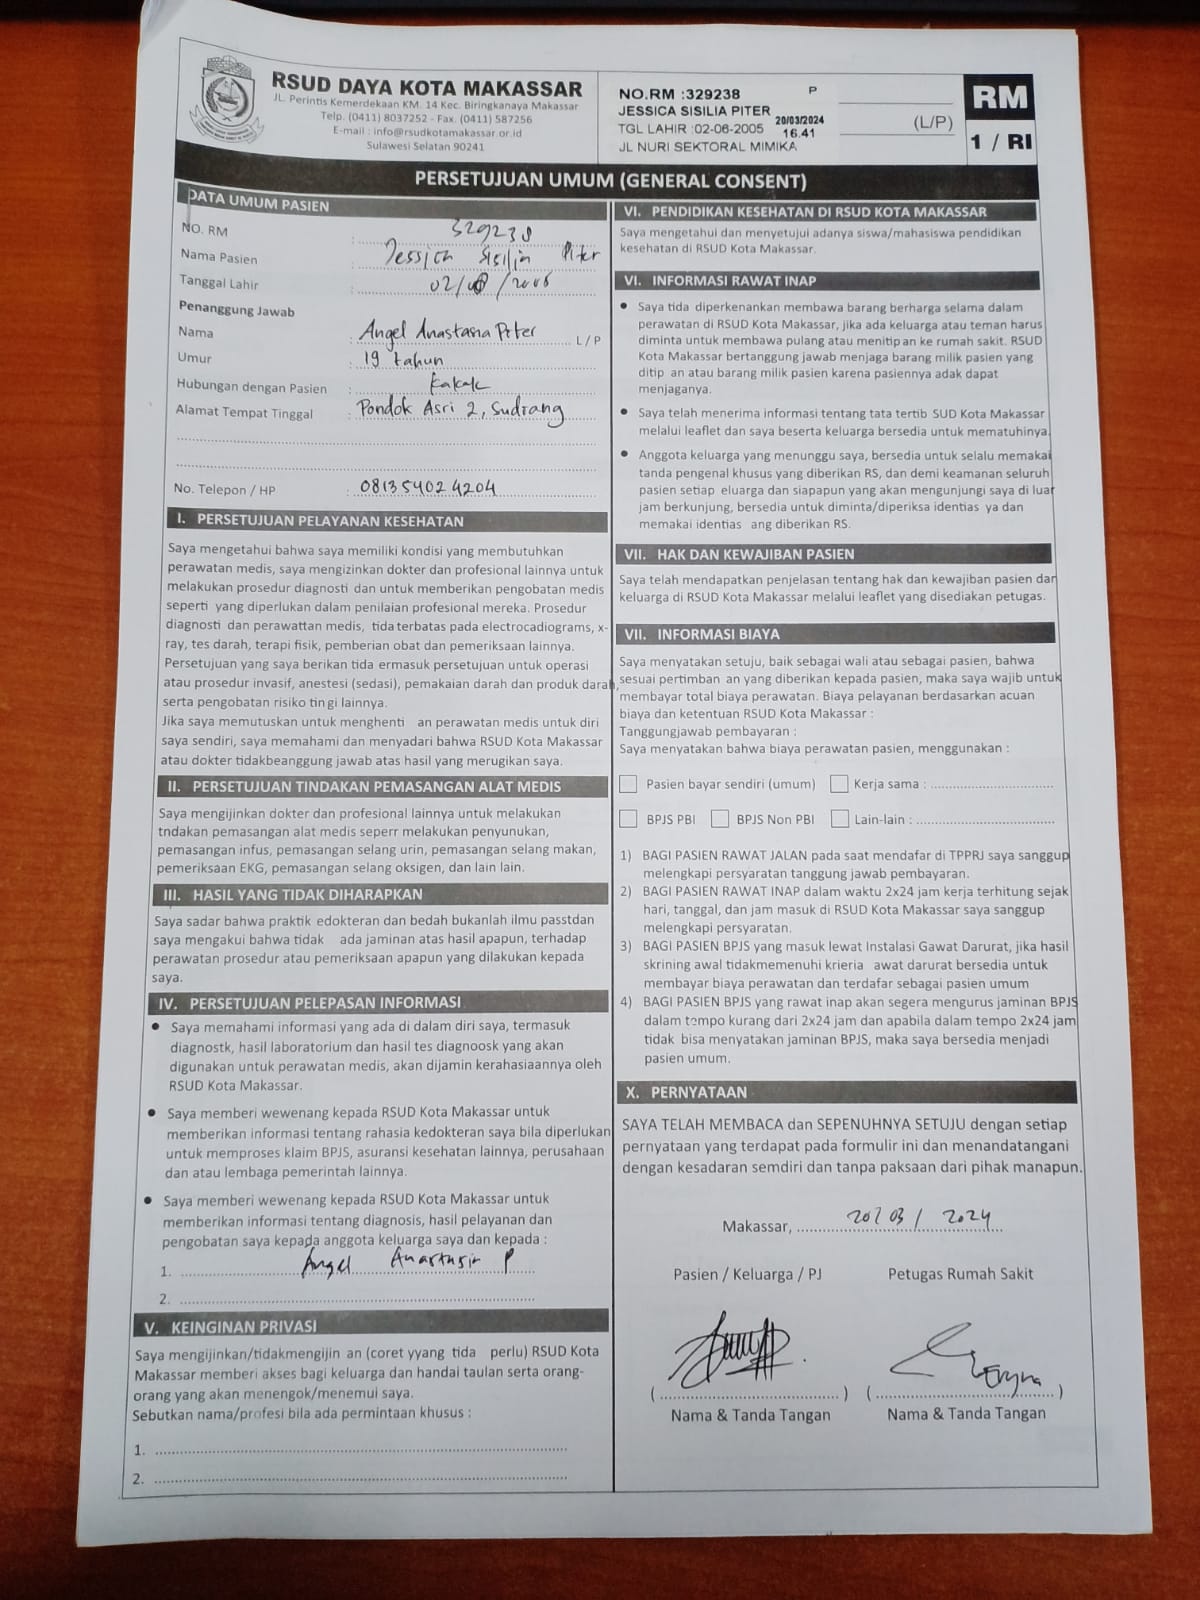 RSUD DAYA KOTA MAKASSAR
JL. Perintis Kemerdekaan KM. 14 Kec. Biringkanaya Makassar
Telp. (0411) 8037252 - Fax. (0411) 587256
E-mail : info@rsudkotamakassar.or.id
Sulawesi Selatan 90241
NO.RM :329238 P
JESSICA SISILIA PITER
TGL LAHIR :02-06-2005
20/03/2024
16.41
JL NURI SEKTORAL MIMIKA
(L/P)
RM
1 / RI
PERSETUJUAN UMUM (GENERAL CONSENT)
DATA UMUM PASIEN
NO. RM : 329238
Nama Pasien : Jessica Sisilia Piter
Tanggal Lahir :
Penanggung Jawab
Nama : Angel Anastasia Piter L / P
Umur : 19 tahun
Hubungan dengan Pasien : Kakak
Alamat Tempat Tinggal : Pondok Asri 2, Sudiang
No. Telepon / HP : 081354024204
I. PERSETUJUAN PELAYANAN KESEHATAN
Saya mengetahui bahwa saya memiliki kondisi yang membutuhkan
perawatan medis, saya mengizinkan dokter dan profesional lainnya untuk
melakukan prosedur diagnosti dan untuk memberikan pengobatan medis
seperti yang diperlukan dalam penilaian profesional mereka. Prosedur
diagnosti dan perawattan medis, tida terbatas pada electrocadiograms, x-
ray, tes darah, terapi fisik, pemberian obat dan pemeriksaan lainnya.
Persetujuan yang saya berikan tida ermasuk persetujuan untuk operasi
atau prosedur invasif, anestesi (sedasi), pemakaian darah dan produk darah,
serta pengobatan risiko tin gi lainnya.
Jika saya memutuskan untuk menghenti an perawatan medis untuk diri
saya sendiri, saya memahami dan menyadari bahwa RSUD Kota Makassar
atau dokter tidakbeanggung jawab atas hasil yang merugikan saya.
II. PERSETUJUAN TINDAKAN PEMASANGAN ALAT MEDIS
Saya mengijinkan dokter dan profesional lainnya untuk melakukan
tndakan pemasangan alat medis seperr melakukan penyunukan,
pemasangan infus, pemasangan selang urin, pemasangan selang makan,
pemeriksaan EKG, pemasangan selang oksigen, dan lain lain.
III. HASIL YANG TIDAK DIHARAPKAN
Saya sadar bahwa praktik edokteran dan bedah bukanlah ilmu passtdan
saya mengakui bahwa tidak ada jaminan atas hasil apapun, terhadap
perawatan prosedur atau pemeriksaan apapun yang dilakukan kepada
saya.
IV. PERSETUJUAN PELEPASAN INFORMASI
• Saya memahami informasi yang ada di dalam diri saya, termasuk
diagnostk, hasil laboratorium dan hasil tes diagnoosk yang akan
digunakan untuk perawatan medis, akan dijamin kerahasiaannya oleh
RSUD Kota Makassar.
• Saya memberi wewenang kepada RSUD Kota Makassar untuk
memberikan informasi tentang rahasia kedokteran saya bila diperlukan
untuk memproses klaim BPJS, asuransi kesehatan lainnya, perusahaan
dan atau lembaga pemerintah lainnya.
• Saya memberi wewenang kepada RSUD Kota Makassar untuk
memberikan informasi tentang diagnosis, hasil pelayanan dan
pengobatan saya kepada anggota keluarga saya dan kepada :
1. Angel Anastasia P
2.
V. KEINGINAN PRIVASI
Saya mengijinkan/tidakmengijin an (coret yyang tida perlu) RSUD Kota
Makassar memberi akses bagi keluarga dan handai taulan serta orang-
orang yang akan menengok/menemui saya.
Sebutkan nama/profesi bila ada permintaan khusus :
1.
2.
VI. PENDIDIKAN KESEHATAN DI RSUD KOTA MAKASSAR
Saya mengetahui dan menyetujui adanya siswa/mahasiswa pendidikan
kesehatan di RSUD Kota Makassar.
VI. INFORMASI RAWAT INAP
• Saya tida diperkenankan membawa barang berharga selama dalam
perawatan di RSUD Kota Makassar, jika ada keluarga atau teman harus
diminta untuk membawa pulang atau menitip an ke rumah sakit. RSUD
Kota Makassar bertanggung jawab menjaga barang milik pasien yang
ditip an atau barang milik pasien karena pasiennya adak dapat
menjaganya.
• Saya telah menerima informasi tentang tata tertib SUD Kota Makassar
melalui leaflet dan saya beserta keluarga bersedia untuk mematuhinya.
• Anggota keluarga yang menunggu saya, bersedia untuk selalu memakai
tanda pengenal khusus yang diberikan RS, dan demi keamanan seluruh
pasien setiap eluarga dan siapapun yang akan mengunjungi saya di luar
jam berkunjung, bersedia untuk diminta/diperiksa identias ya dan
memakai identias ang diberikan RS.
VII. HAK DAN KEWAJIBAN PASIEN
Saya telah mendapatkan penjelasan tentang hak dan kewajiban pasien dan
keluarga di RSUD Kota Makassar melalui leaflet yang disediakan petugas.
VII. INFORMASI BIAYA
Saya menyatakan setuju, baik sebagai wali atau sebagai pasien, bahwa
sesuai pertimban an yang diberikan kepada pasien, maka saya wajib untuk
membayar total biaya perawatan. Biaya pelayanan berdasarkan acuan
biaya dan ketentuan RSUD Kota Makassar :
Tanggungjawab pembayaran :
Saya menyatakan bahwa biaya perawatan pasien, menggunakan :
Pasien bayar sendiri (umum) Kerja sama :
BPJS PBI BPJS Non PBI Lain-lain :
1) BAGI PASIEN RAWAT JALAN pada saat mendafar di TPPRJ saya sanggup
melengkapi persyaratan tanggung jawab pembayaran.
2) BAGI PASIEN RAWAT INAP dalam waktu 2x24 jam kerja terhitung sejak
hari, tanggal, dan jam masuk di RSUD Kota Makassar saya sanggup
melengkapi persyaratan.
3) BAGI PASIEN BPJS yang masuk lewat Instalasi Gawat Darurat, jika hasil
skrining awal tidakmemenuhi krieria awat darurat bersedia untuk
membayar biaya perawatan dan terdafar sebagai pasien umum
4) BAGI PASIEN BPJS yang rawat inap akan segera mengurus jaminan BPJS
dalam tempo kurang dari 2x24 jam dan apabila dalam tempo 2x24 jam
tidak bisa menyatakan jaminan BPJS, maka saya bersedia menjadi
pasien umum.
X. PERNYATAAN
SAYA TELAH MEMBACA dan SEPENUHNYA SETUJU dengan setiap
pernyataan yang terdapat pada formulir ini dan menandatangani
dengan kesadaran semdiri dan tanpa paksaan dari pihak manapun.
Makassar, 20/03/2024
Pasien / Keluarga / PJ Petugas Rumah Sakit
Nama & Tanda Tangan Nama & Tanda Tangan